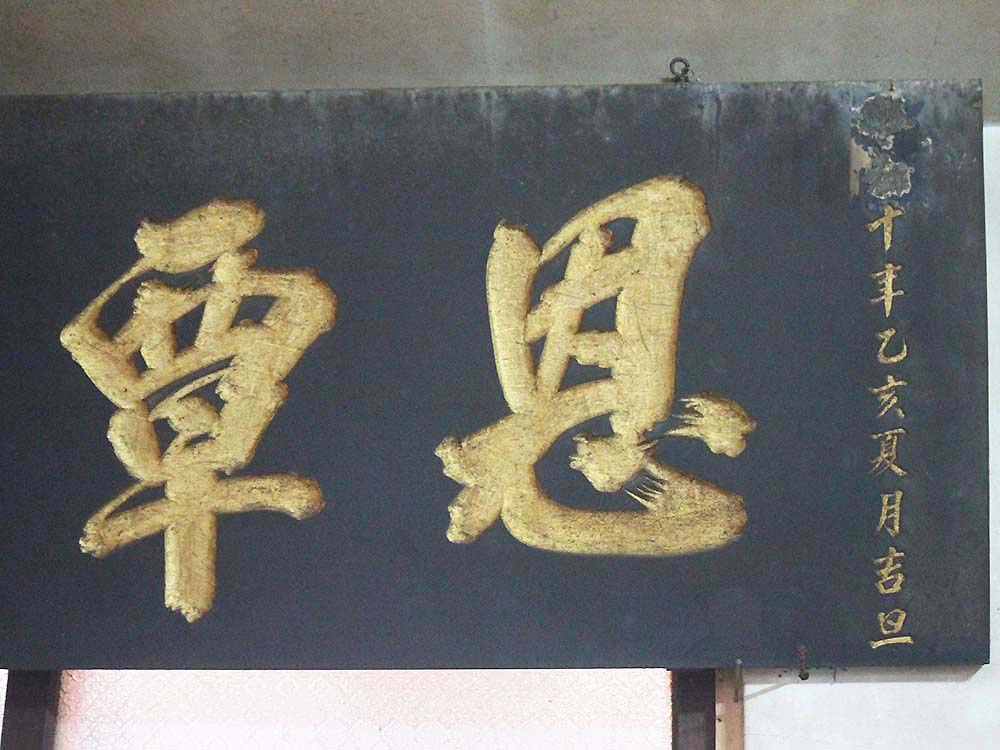 十年乙亥夏月吉旦
恩覃